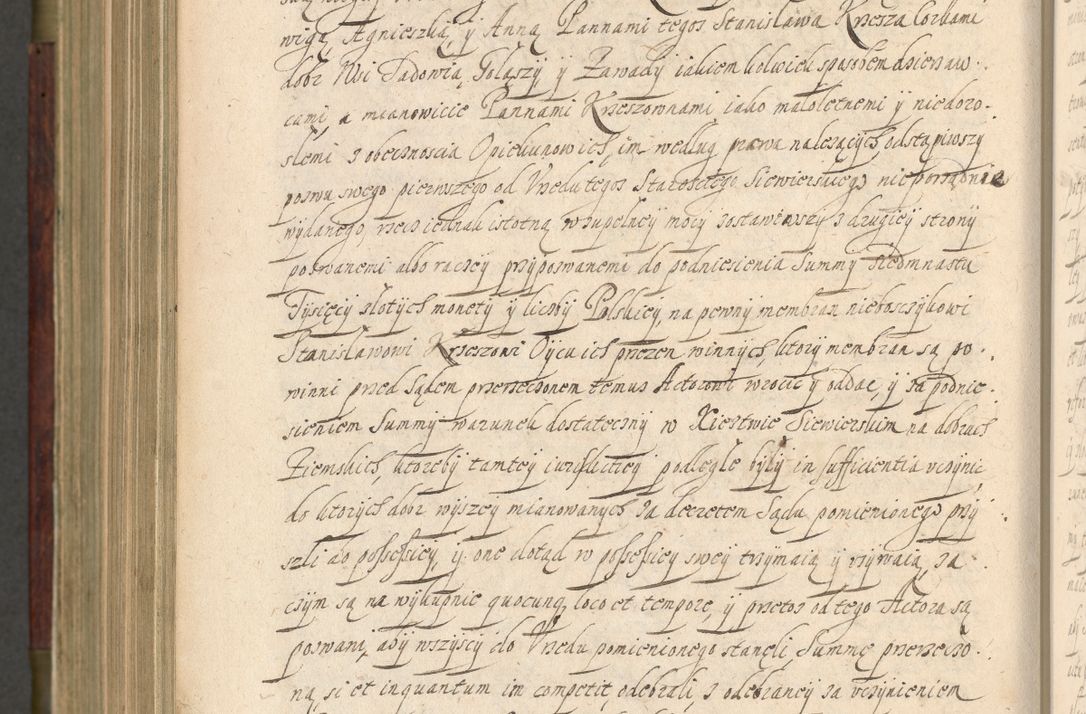 wigą, Agnieszką, y Anną Pannami tegoz Stanisława Krzesza Corkami
dobr Wsi Tadowią, Gołąszy y Zawady iakiemkolwiek sposobem dzierzaw.
cami, a mianowicie Pannami Krzeszownami iako małoletnemi y niedoro-
słemi z obecznoscia Opiekunow ich, im według prawa nalezących, odstąpiwszy
pozwu swego pierwszego od Vrzedu tegoz Staroscieg. Siewierskiego nieporządnie
wydanego, rzecz iednak istotną w zupełney mocy zostawiwszy z drugiey strony
pozwanemi albo raczey przypozwanemi do podniesienia Summy siedmnastu
Tysięcy złotych monety y liczby Polskiey, na pewny membran nieboszczykowi
Stanisławowi Krzeszowi Oycu ich przezen winnych, ktory membran są po.
winni przed Sądem przerzeczonem temuz Actorowi wrocic y oddac, y za podnie-
sieniem Summy warunek dostateczny w Xiestwie Siewierskim na dobrach
Ziemskich, ktoreby tamtey iurisdictiey podległe były in sufficientia vczynic,
do ktorych dobr wyszey mianowanych za decretem Sądu pomienionego przy
szli do possessiey, y one dotąd w possessiey swey trzymaią y vzywaią, za
czym są na wykupnie quocunq, loco et tempore, y przetoz od tego Actora są
pozwani, aby wszyscy do Vrzedu pomienionego staneli, Summę przerzeczo-
ną, si et inquantum im competit, odebrali, z odebraney za vczynieniem